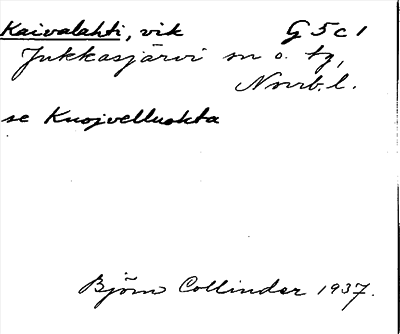 Kaivalahti, vik G5c1
Jukkasjärvi sn o. tg,
Norrb.l.
se Kuojvelluokta
Björn Collinder 1937.